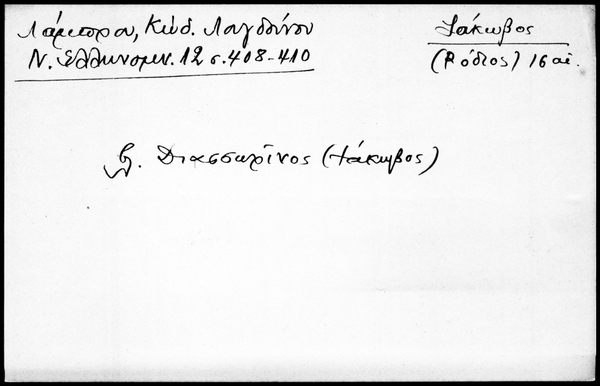 Λάμπρου, Κώδ. Λαγδίνου
Ν. Ἑλληνομν. 12 σ. 408-410
Ἰάκωβος
(Ῥόδιος) 16 αἰ.
Διασσωρῖνος (Ἰάκωβος)